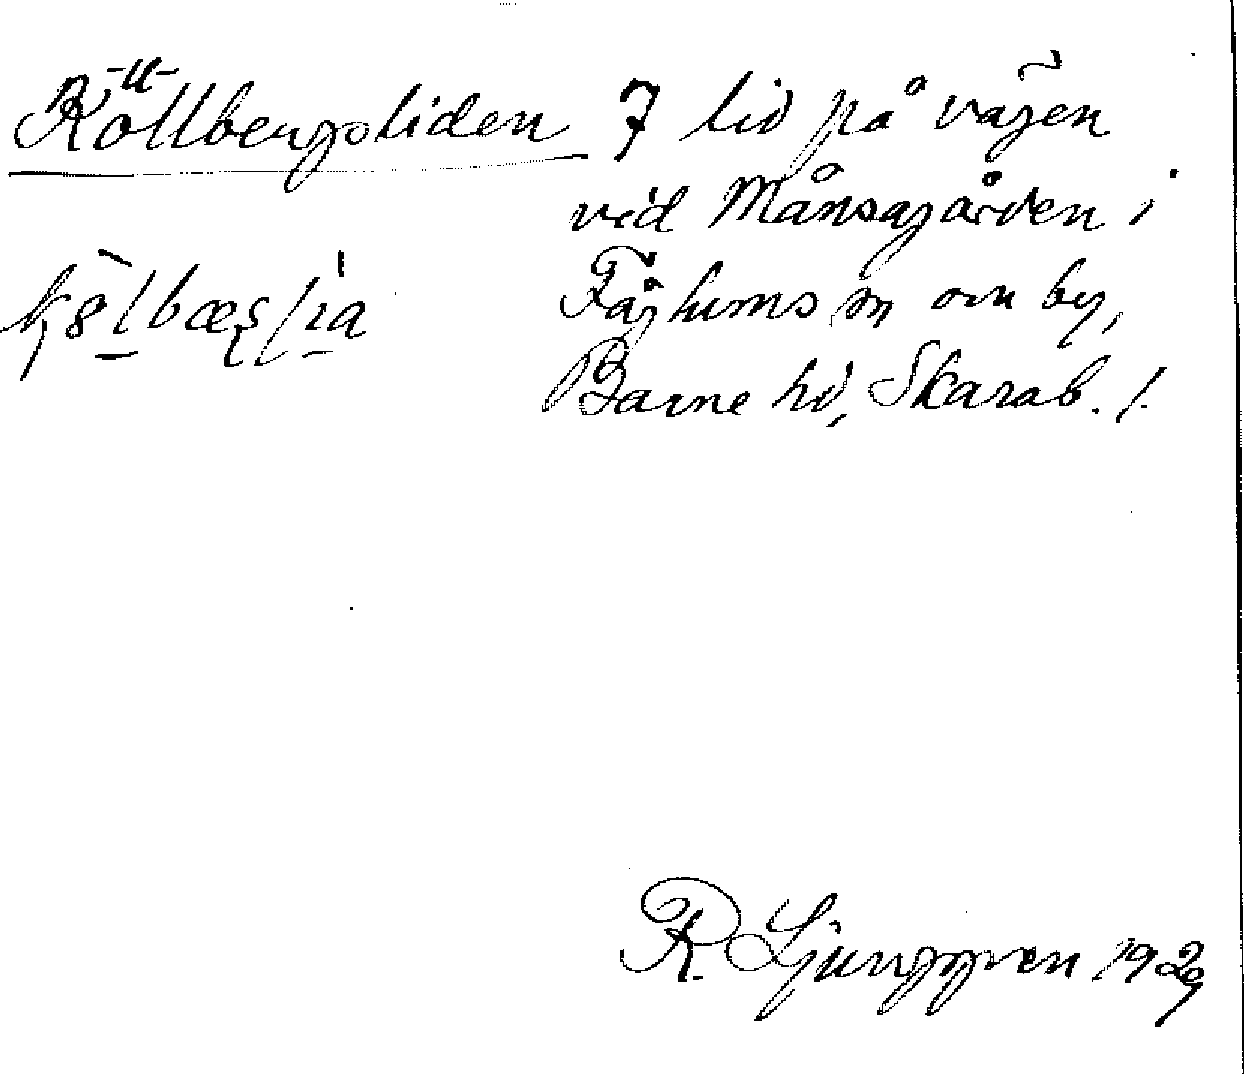 Köllbergsliden 7 lid på vägen
vid Månsagården i
Fåglums sn om by,
Barne hd, Skarab. l.
R Ljunggren 1929